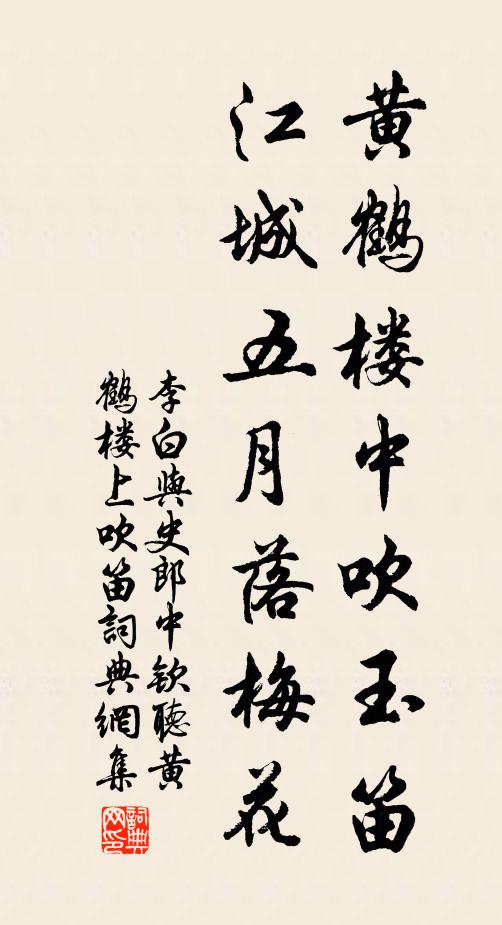 黄鹤楼中吹玉笛
江城五月落梅花
李白與史郎中欽聽黄
鹤楼上吹笛詞典網集
詞典
网印